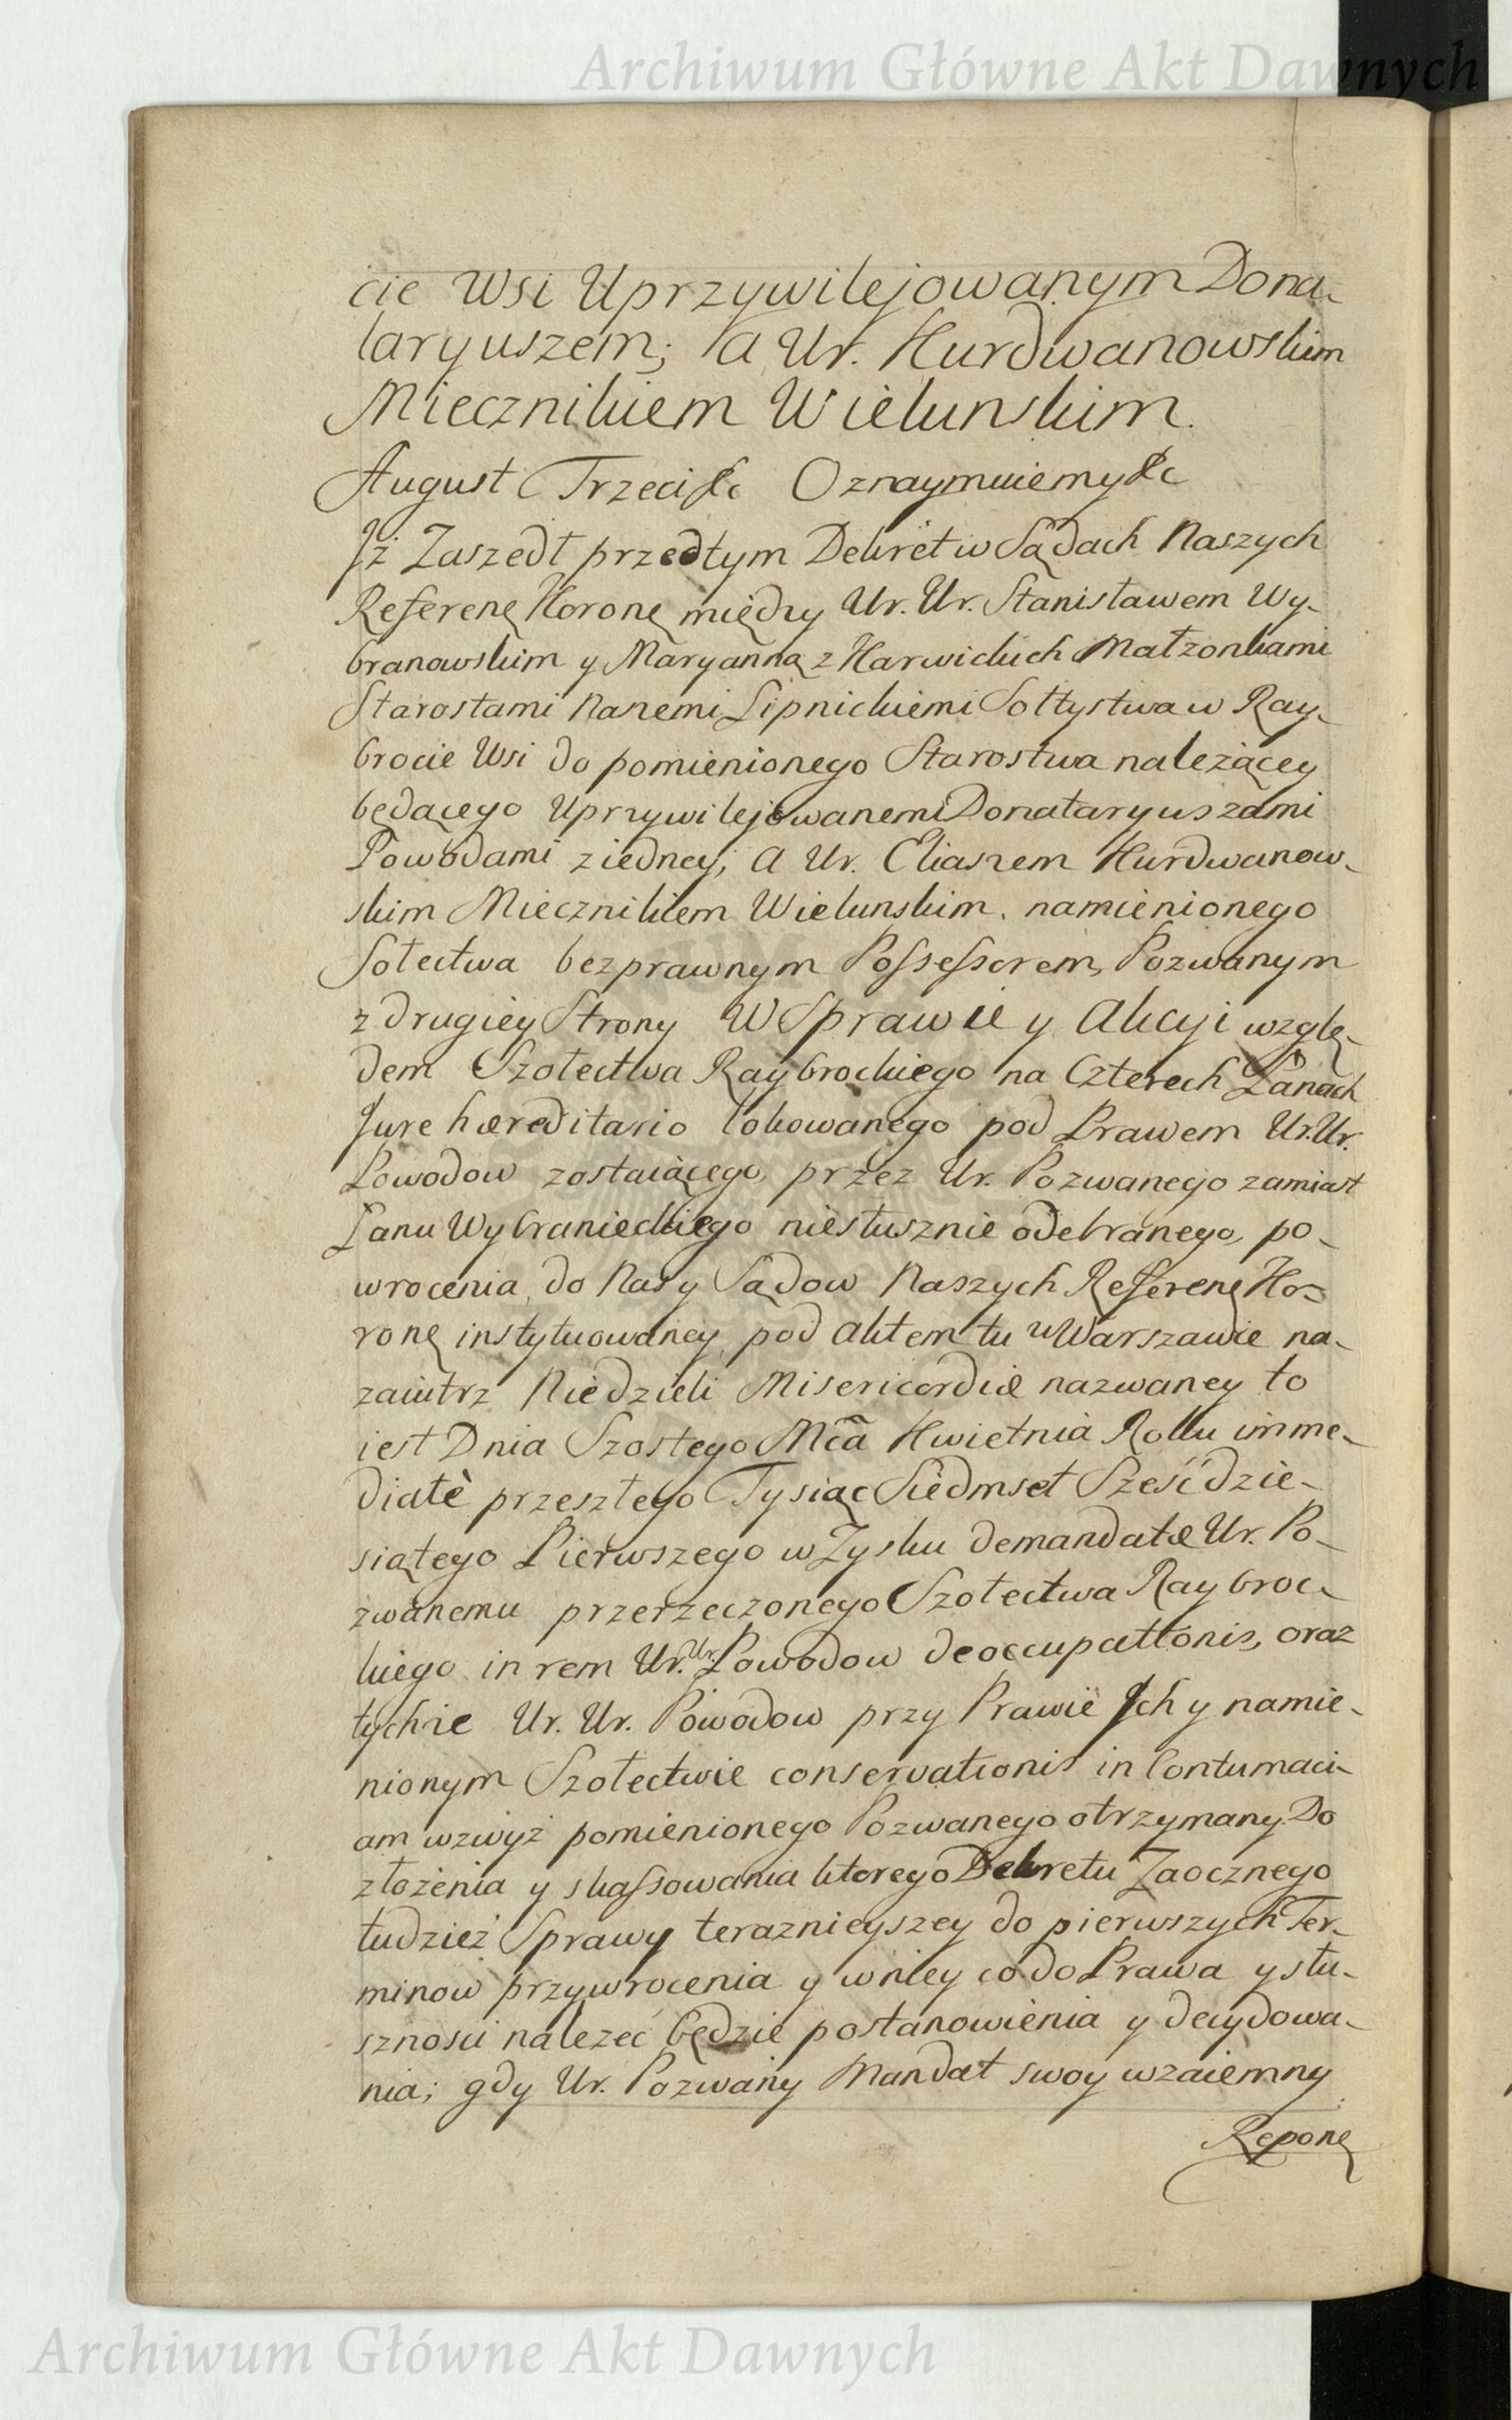 Archiwum Główne Akt Dawnych
cie Wsi Uprzywilejowanym Dona-
taryuszem; a Ur. Hurdwanowskim
Miecznikiem Wielunskim.
August Trzeci &c Oznaymuiemy &c
Jż Zaszedł przedtym Dekret w Sądach Naszych
Referenę Koronę między Ur. Ur. Stanisławem Wy-
branowskim y Maryanną z Harwickich Małzonkami
Starostami Naszemi Lipnickiemi Sołtystwa w Ray-
brocie Wsi do pomienionego Starostwa należącey
będącego Uprzywilejowanemi Donataryuszami
Powodami z iedney; a Ur. Eliaszem Hurdwanow-
skim Miecznikiem Wielunskim. namienionego
Sołectwa bezprawnym Possessorem, Pozwanym
z drugiey Strony W Sprawie y Akcyi wzglę-
dem Szołectwa Raybrockiego na Czterech Łanach
Jure hæreditario lokowanego pod Prawem Ur. Ur.
Powodow zostaiącego, przez Ur. Pozwanego zamiast
Łanu Wybranieckiego niesłusznie odebranego, po-
wrocenia, do Nas y Sądow Naszych Referenę Ko-
ronę instytuowaney, pod aktem tu w Warszawie na-
zaiutrz Niedzieli Misericordiæ nazwaney to
iest Dnia Szostego Mca Kwietnia Roku imme-
diatè przeszłego Tysiąc Siedmset Sześćdzie-
siątego Pierwszego w Zysku demandatæ Ur. Po-
zwanemu przerzeczonego Szołectwa Raybroc-
kiego in rem Ur. Ur. Powodow deoccupationis, oraz
tychże Ur. Ur. Powodow przy Prawie Jch y namie-
nionym Szołectwie conservationis in Contumaci-
am wzwyż pomienionego Pozwanego otrzymany. Do
złożenia y skassowania ktorego Dekretu Zaocznego
tudzież Sprawy teraznieyszey do pierwszych Ter-
minow przywrocenia y w niey co do Prawa y słu-
sznosci nalezeć będzie postanowienia y decydowa-
nia; gdy Ur. Pozwany Mandat swoy wzaiemny
Reponę
Archiwum Główne Akt Dawnych